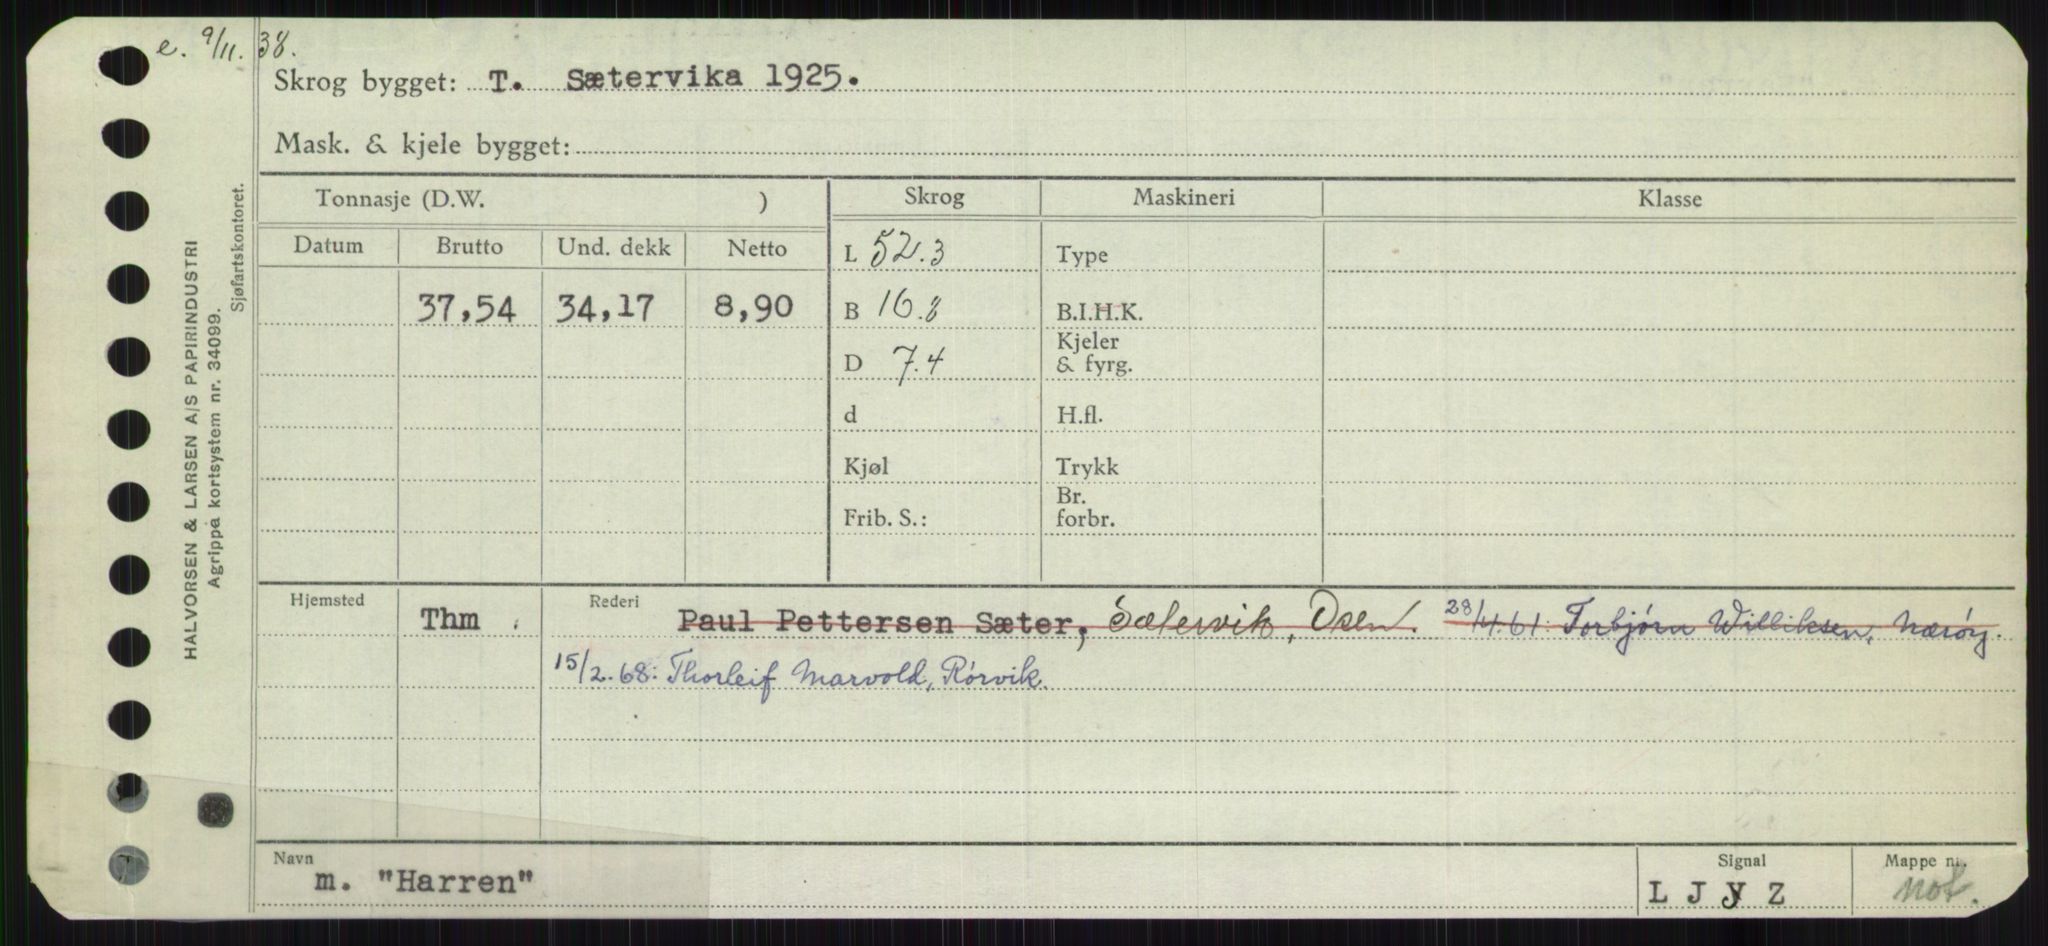 e. 9/11. 38.
Skrog bygget: T. Sætervika 1925.
Mask. & kjele bygget:
Tonnasje (D.W. )
Skrog
Maskineri
Klasse
Datum
Brutto
Und. dekk
Netto
37,54
34,17
8,90
L 52.3
B 16.8
D 7.4
d
Kjøl
Frib. S.:
Type
B.I.H.K.
Kjeler
& fyrg.
H.fl.
Trykk
Br.
forbr.
Hjemsted
Thm.
Rederi
Paul Pettersen Sæter, Sætervik, Osen. 28/4.61: Torbjørn Williksen, Nærøy.
15/2.68: Thorleif Marvold, Rørvik.
Navn
m. "Harren"
Signal
L J Y Z
Mappe nr.
not.
HALVORSEN & LARSEN A/S PAPIRINDUSTRI
Agrippa kortsystem nr. 34099.
Sjøfartskontoret.